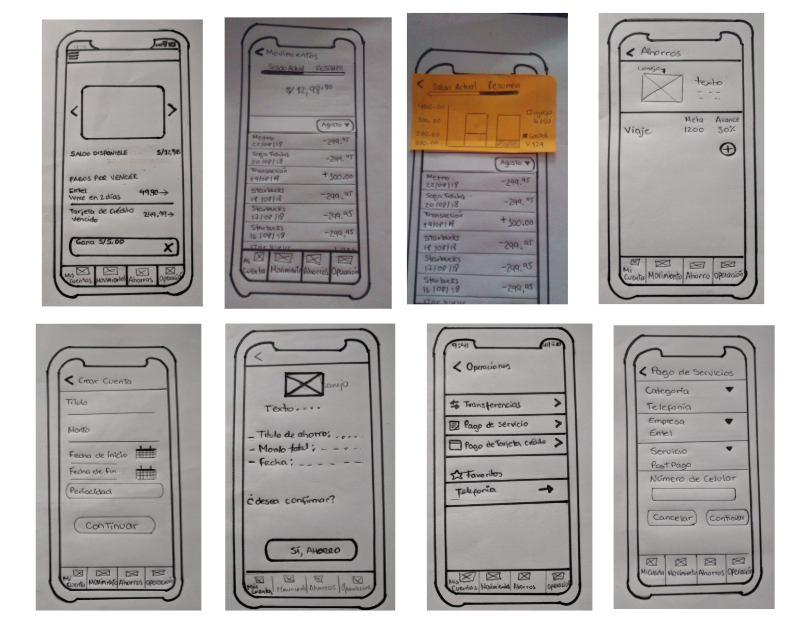 SALDO DISPONIBLE
PAGOS POR VENCER
Entel
Vence en 2 días 49,90 →
Tarjeta de Crédito
vencido 249,99 →
Gana S/5.00 X
Mis Cuentas Movimientos Ahorros Operación
< Movimientos
Saldo Actual Resumen
Agosto ▼
Metro
22/08/18 -299,95
-299,95
Transacción
19/08/18 +500.00
Starbucks
18/08/18 -299,95
Starbucks
17/08/18 -299,95
Starbucks
16/08/18 -299,95
Mi Cuenta Movimiento Ahorros Operación
< Saldo Actual Resumen
Agosto ▼
Metro
22/08/18 -299,95
20/08/18 -299,95
Transacción
19/08/18 +500.00
Starbucks
18/08/18 -299,95
Starbucks
17/08/18 -299,95
Starbucks
16/08/18 -299,95
< Ahorros
conejo
texto
Meta Avance
Viaje 1200 30%
Mi Cuenta Movimiento Ahorro Operación
< Crear Cuenta
Título
Monto
Fecha de inicio
Fecha de fin
Continuar
Mi Cuenta Movimiento Ahorros Operación
<
conejo
Texto....
- Título de ahorro: ....
- Monto total: - - - -
- Fecha: - - - -
¿desea confirmar?
Sí, AHORRO
Mis Cuentas Movimiento Ahorros Operación
9:41
< Operaciones
Transferencias >
Pago de Servicio >
Pago de Tarjeta Crédito >
Favoritos
Telefonía →
Mis Cuentas Movimiento Ahorros Operación
< Pago de Servicios
Categoría ▼
Telefonía
Empresa ▼
Entel
Servicio ▼
Post Pago
Número de Celular
Cancelar Continuar
Mi Cuenta Movimiento Ahorros Operación